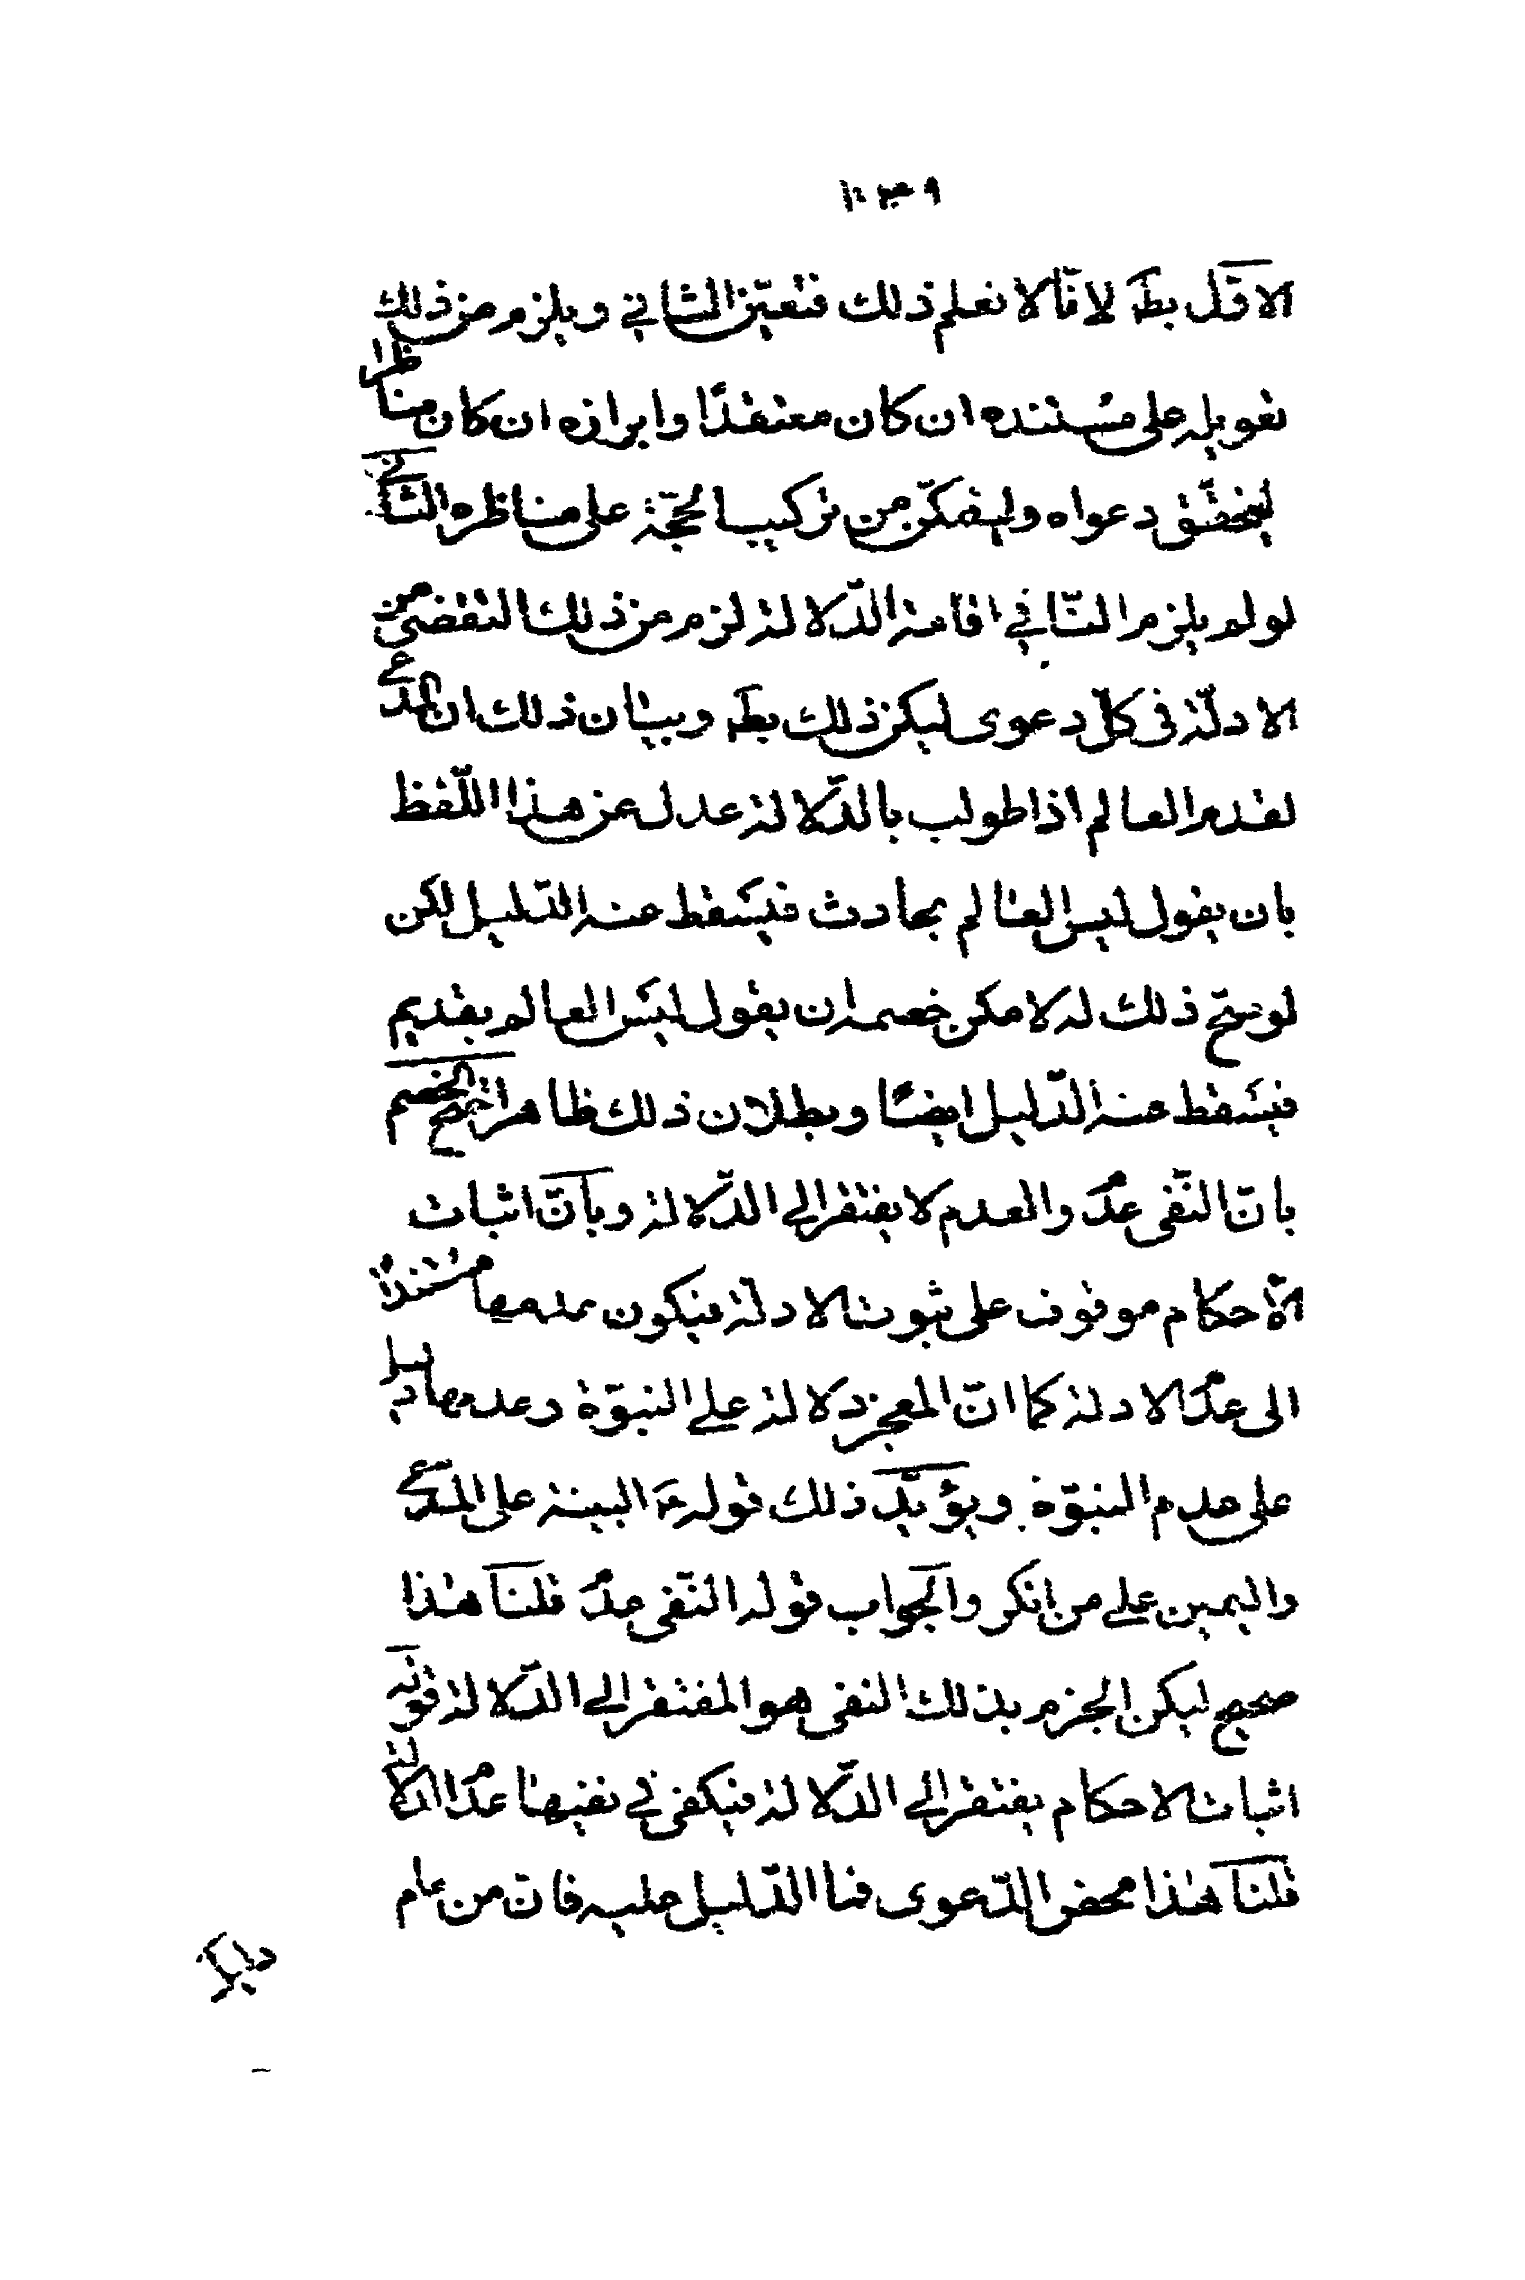 الاوّل بطَ لانّا لا نعلم ذلك فتعيّن الثاني ويلزم من ذلك
تعويله على مستنده ان كان معتقدًا وابرازه ان كان مناظرا
ليتحقّق دعواه وليتمكّن من تركيب الحجّة على مناظره الثاني
لو لم يلزم النّافي اقامة الدّلالة لزم من ذلك التفضى من
الادلّة فى كلّ دعوى ليكن ذلك بطَ وبيان ذلك ان المدعي
لقدم العالم اذا طولب بالدّلالة عدل عن هذا اللّفظ
بان يقول ليس العالم بحادث فيسقط عنه الدّليل لكن
لو صحّ ذلك له لامكن خصمه ان يقول ليس العالم بقديم
فيسقط عنه الدّليل ايضًا وبطلان ذلك ظاهر احتج الخصم
بانّ النّفى عدم والعدم لا يفتقر الى الدّلالة وبانّ اثبات
الاحكام موقوف على ثبوت الادلّة فيكون عدمها مستندا
الى عدم الادلة كما انّ المعجز دلالة على النبوّة وعدمها دليل
على عدم النبوّة ويؤيّد ذلك قوله عَ البينة على المدّعي
واليمين على من انكر والجواب قوله النّفى عدم قلنا هذا
صحيح ليكن الجزم بذلك النفى هو المفتقر الى الدّلالة قوله
اثبات الاحكام يفتقر الى الدّلالة فيكفى في نفيها عدم الدلالة
قلنا هذا محض الدّعوى فما الدّليل عليه فانّ من علم